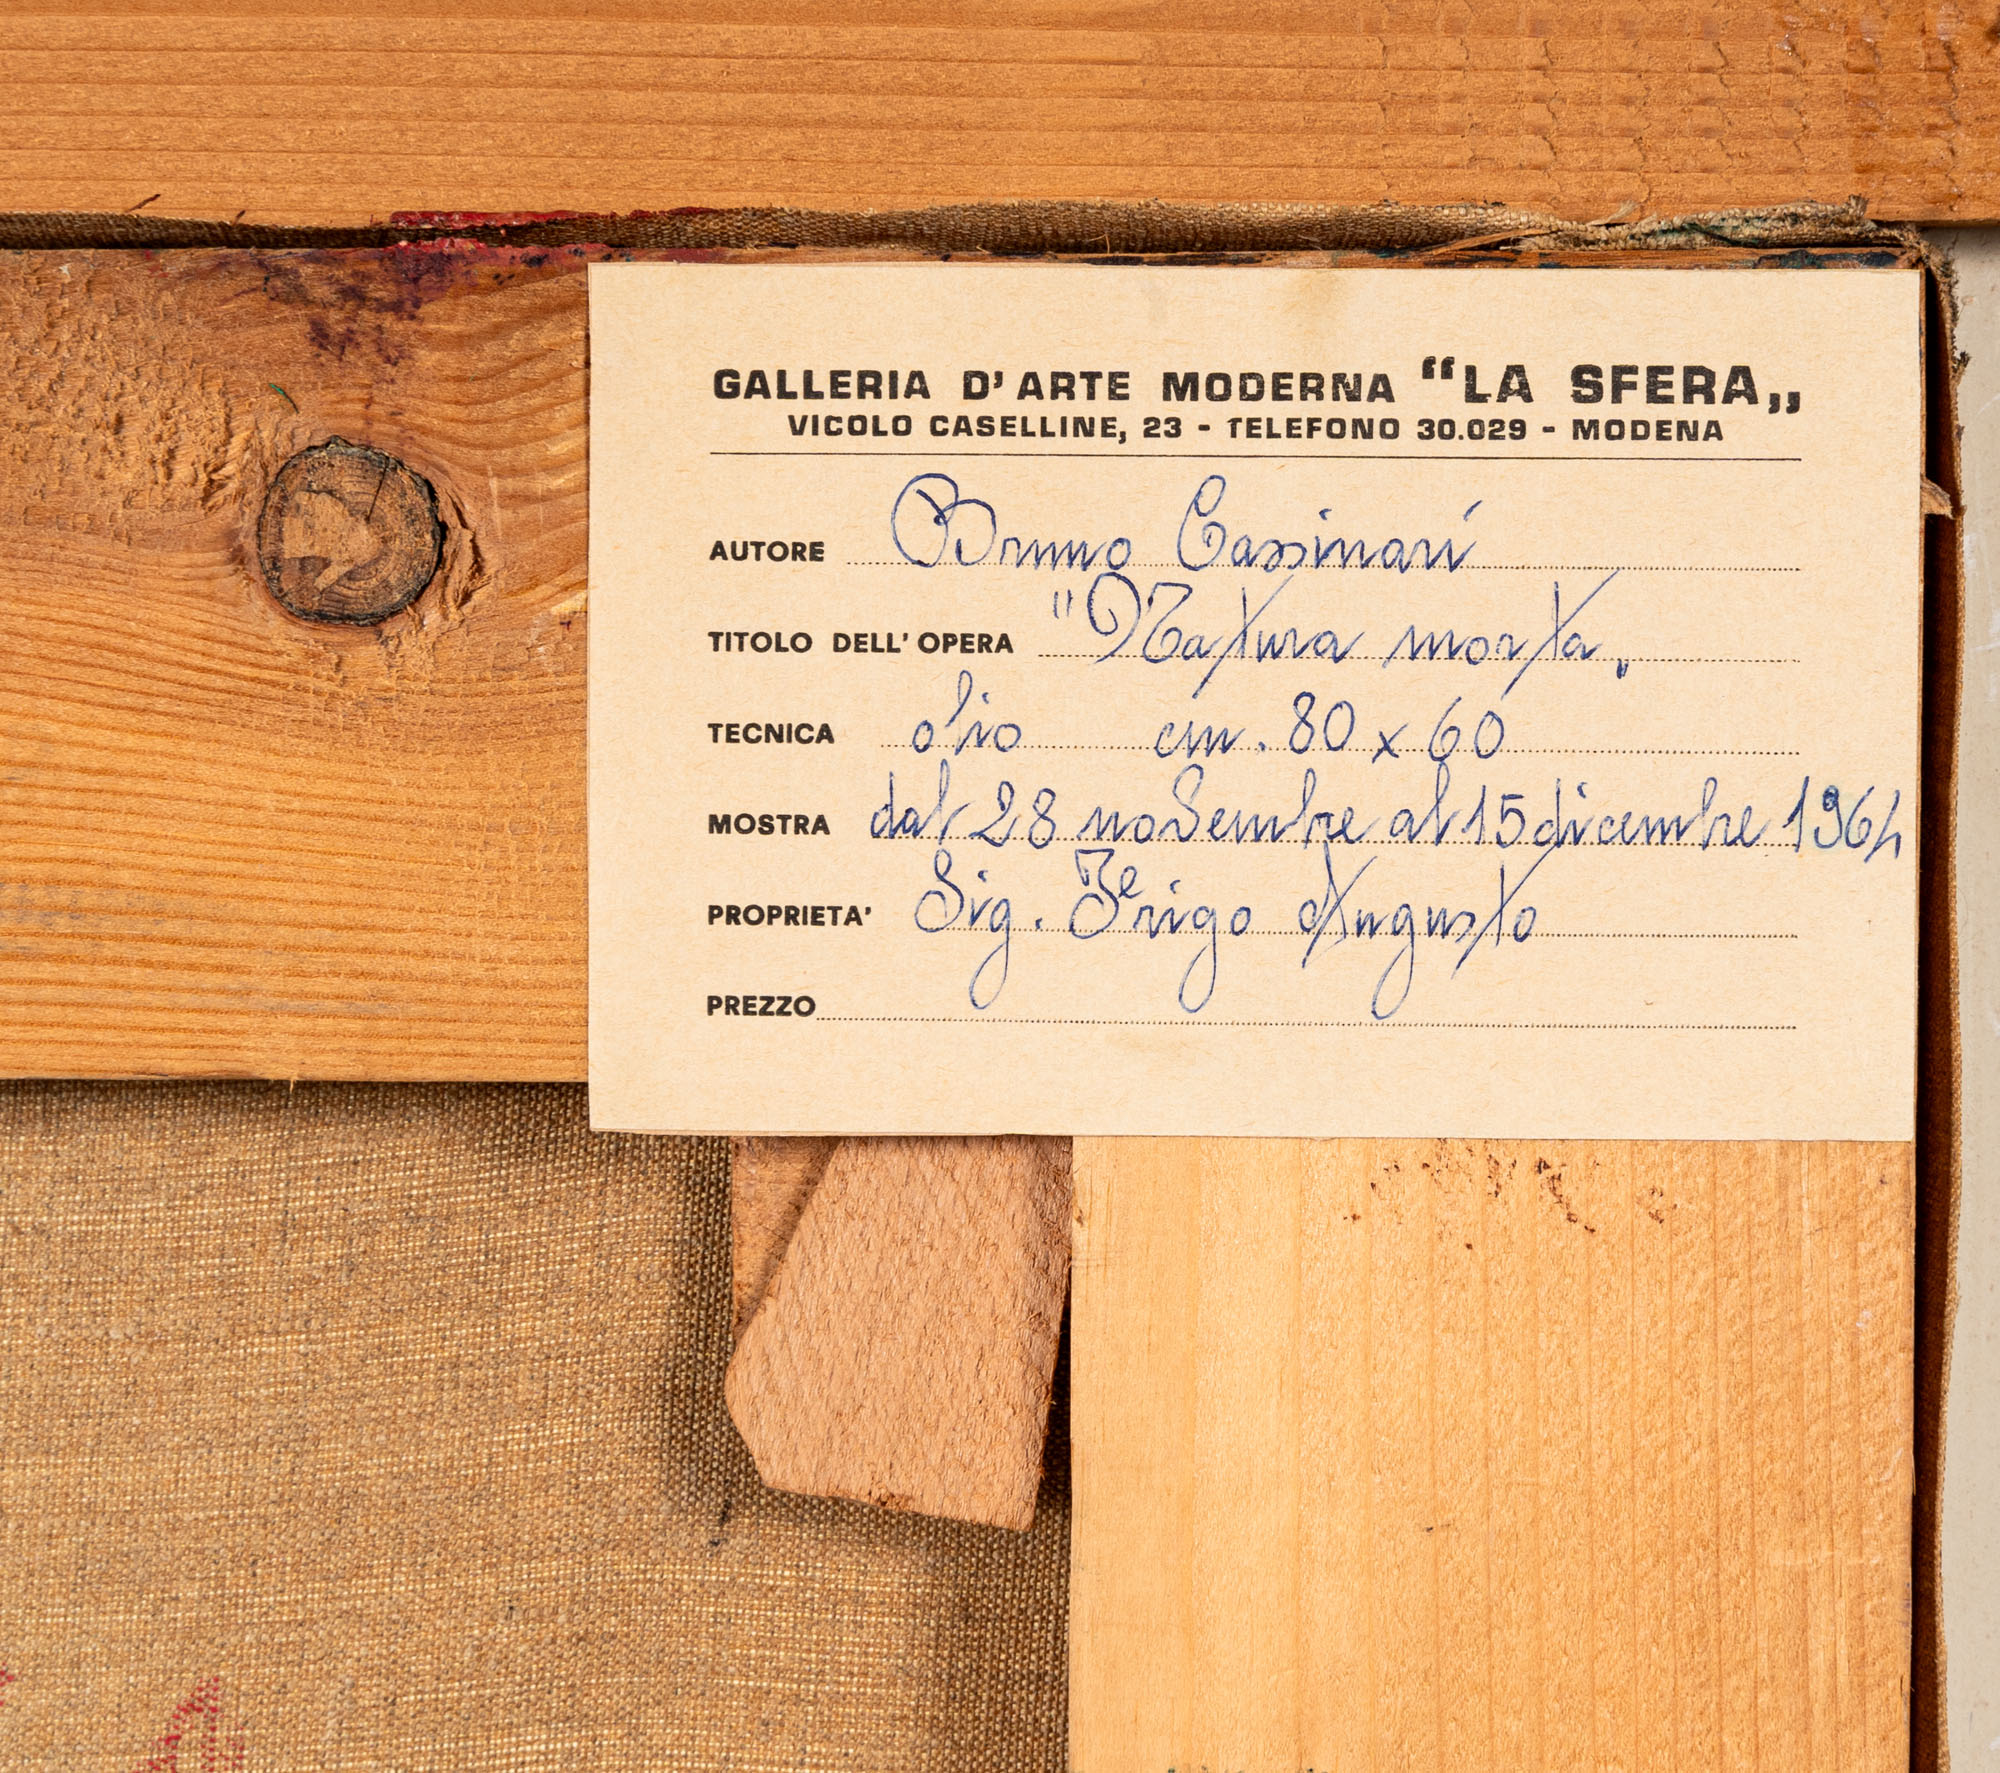 GALLERIA D'ARTE MODERNA “LA SFERA„
VICOLO CASELLINE, 23 - TELEFONO 30.029 - MODENA
AUTORE Bruno Cassinari
TITOLO DELL'OPERA "Natura morta„
TECNICA olio cm. 80 x 60
MOSTRA dal 28 novembre al 15 dicembre 1964
PROPRIETA' Sig. Augusto
PREZZO